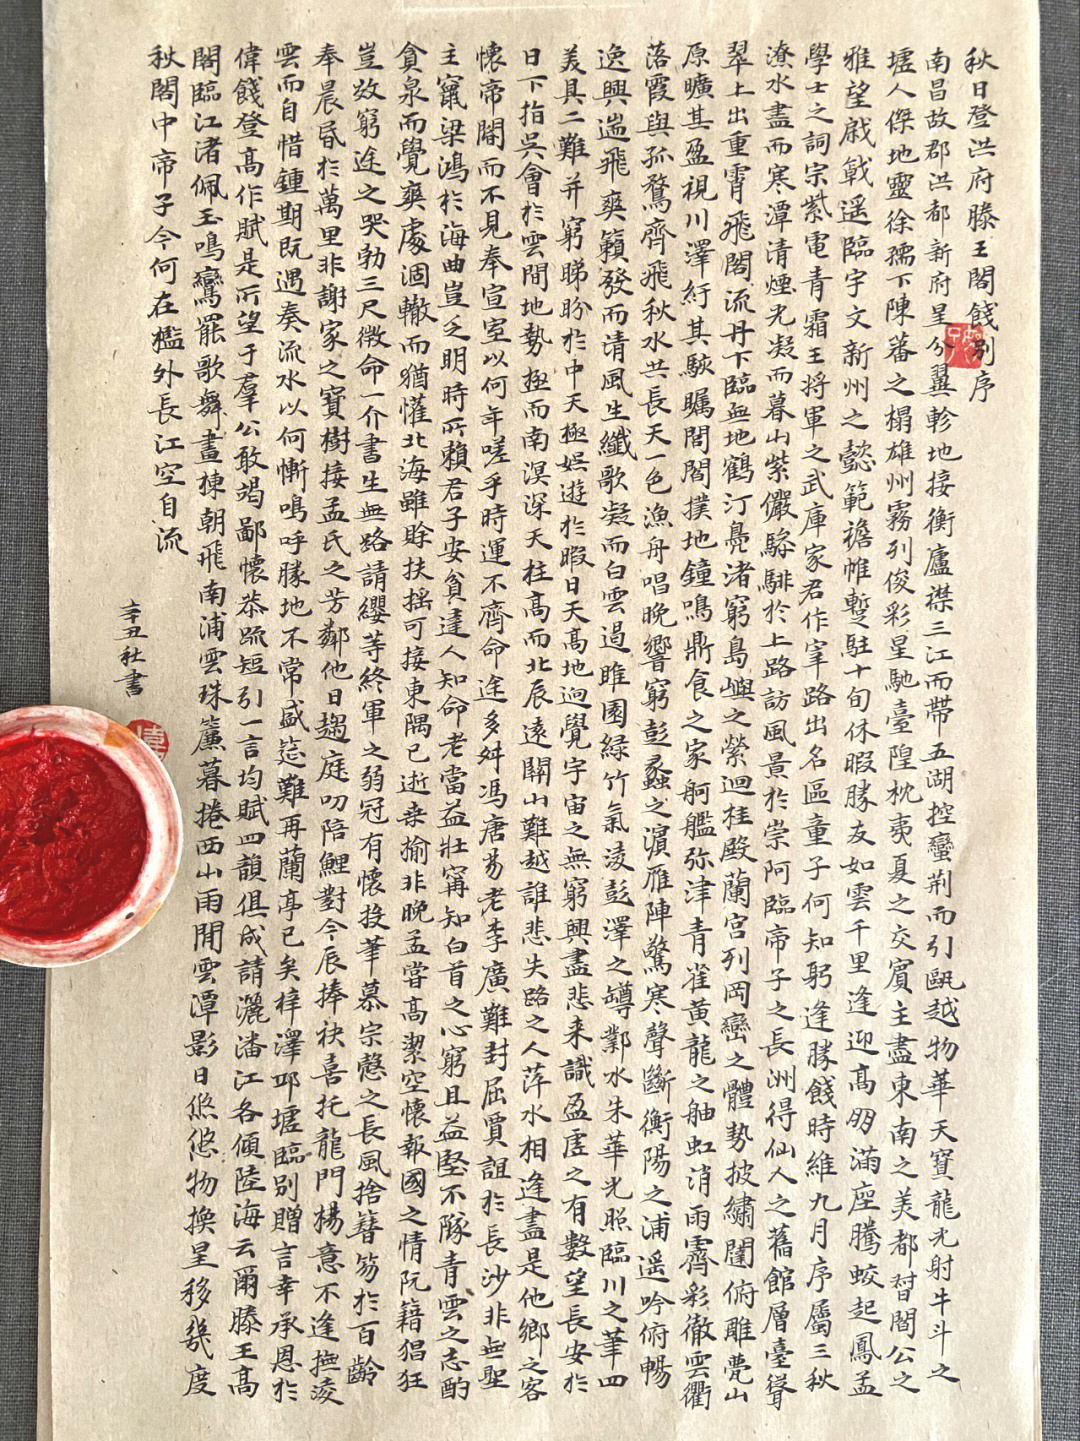 秋日登洪府滕王閣餞別序
南昌故郡洪都新府星分翼軫地接衡廬襟三江而帶五湖控蠻荆而引甌越物華天寶龍光射牛斗之
墟人傑地靈徐孺下陳蕃之榻雄州霧列俊彩星馳臺隍枕夷夏之交賓主盡東南之美都督閻公之
雅望棨戟遥臨宇文新州之懿範襜帷暫駐十旬休暇勝友如雲千里逢迎高朋滿座騰蛟起鳳孟
學士之詞宗紫電青霜王將軍之武庫家君作宰路出名區童子何知躬逢勝餞時維九月序屬三秋
潦水盡而寒潭清煙光凝而暮山紫儼驂騑於上路訪風景於崇阿臨帝子之長洲得仙人之舊館層臺聳
翠上出重霄飛閣流丹下臨無地鶴汀鳧渚窮島嶼之縈迴桂殿蘭宫列岡巒之體勢披繡闥俯雕甍山
原曠其盈視川澤紆其駭矚閭閻撲地鐘鳴鼎食之家舸艦弥津青雀黄龍之舳虹消雨霽彩徹雲衢
落霞與孤鶩齊飛秋水共長天一色漁舟唱晚響窮彭蠡之濱雁陣驚寒聲斷衡陽之浦遥吟俯暢
逸興遄飛爽籟發而清風生纖歌凝而白雲遏睢園緑竹氣凌彭澤之罇鄴水朱華光照臨川之筆四
美具二難并窮睇眄於中天極娱遊於暇日天高地迥覺宇宙之無窮興盡悲来識盈虚之有數望長安於
日下指吴會於雲間地勢極而南溟深天柱高而北辰遠關山難越誰悲失路之人萍水相逢盡是他鄉之客
懷帝閽而不見奉宣室以何年嗟乎時運不齊命途多舛馮唐易老李廣難封屈賈誼於長沙非無聖
主竄梁鴻於海曲豈乏明時所賴君子安貧達人知命老當益壯寗知白首之心窮且益堅不隊青雲之志酌
貪泉而覺爽處涸轍而猶懽北海雖賒扶摇可接東隅已逝桑榆非晚孟嘗高潔空懷報國之情阮籍猖狂
豈效窮途之哭勃三尺微命一介書生無路請纓等終軍之弱冠有懷投筆慕宗慤之長風捨簪笏於百齡
奉晨昏於萬里非謝家之寶樹接孟氏之芳鄰他日趨庭叨陪鯉對今辰捧袂喜托龍門楊意不逢撫凌
雲而自惜鍾期既遇奏流水以何慚嗚呼勝地不常盛筵難再蘭亭已矣梓澤邱墟臨别贈言幸承恩於
偉餞登高作賦是所望于羣公敢竭鄙懷恭疏短引一言均賦四韻俱成請灑潘江各傾陸海云爾滕王高
閣臨江渚佩玉鳴鸞罷歌舞畫棟朝飛南浦雲珠簾暮捲西山雨閒雲潭影日悠悠物換星移幾度
秋閣中帝子今何在檻外長江空自流
辛丑社書